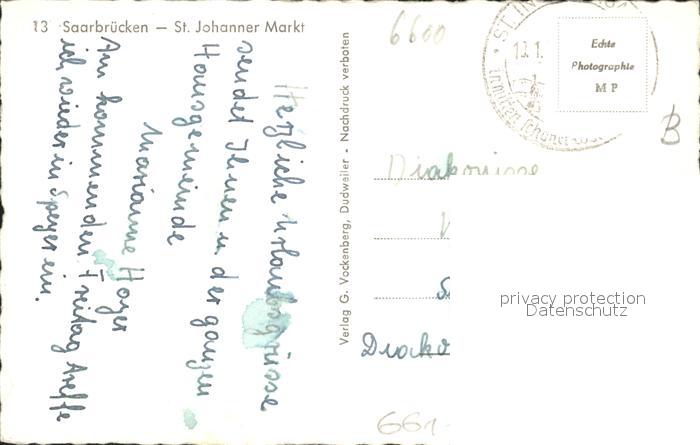 13 Saarbrücken — St. Johanner Markt
Herzliche Urlaubsgrüsse
sendet Ihnen u der ganzen
Hausgemeinde
Marianne Hoyer
Am kommenden Freitag treffe
ich wieder in Speyer ein.
Verlag G. Vockenberg, Dudweiler - Nachdruck verboten
6600
ST. IN
Echte
Photographie
M P
B
Diakonisse
Diako
661
privacy protection
Datenschutz